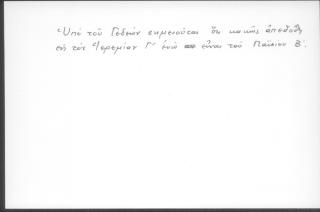 Ὑπὸ τοῦ Γεδεὼν σημειοῦται ὅτι κακῶς ἀπεδόθη
εἰς τὸν Ἱερεμίαν Γ' ἐνῶ εἶναι τοῦ Παϊσίου Β'.